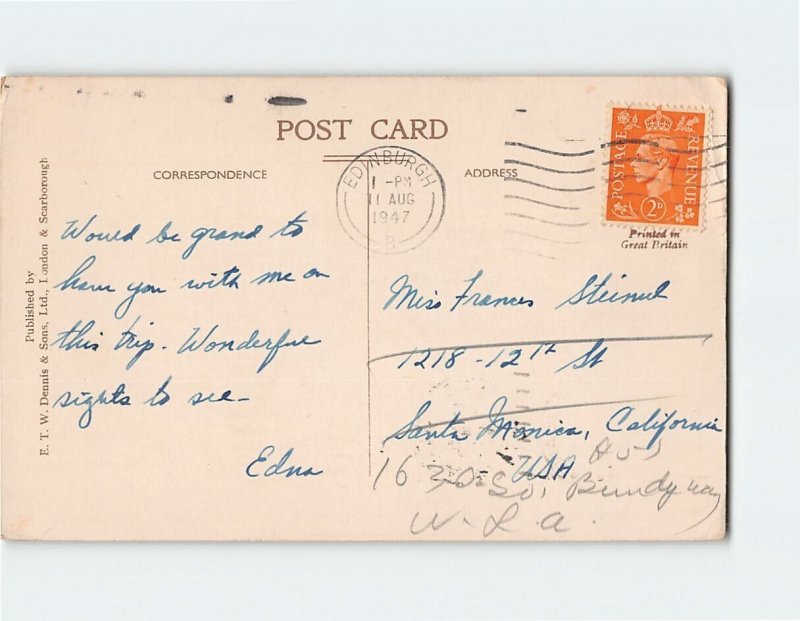 POST CARD
CORRESPONDENCE
ADDRESS
EDINBURGH
1 -PM
11 AUG
1947
POSTAGE
REVENUE
2D
Printed in
Great Britain
Published by
E. T. W. Dennis & Sons, Ltd., London & Scarborough
Would be grand to
have you with me on
this trip. Wonderful
sights to see-
Edna
Miss Frances
1218-12th St
Santa Monica, California
USA
1630 So. Bundy Way
W. L. A.